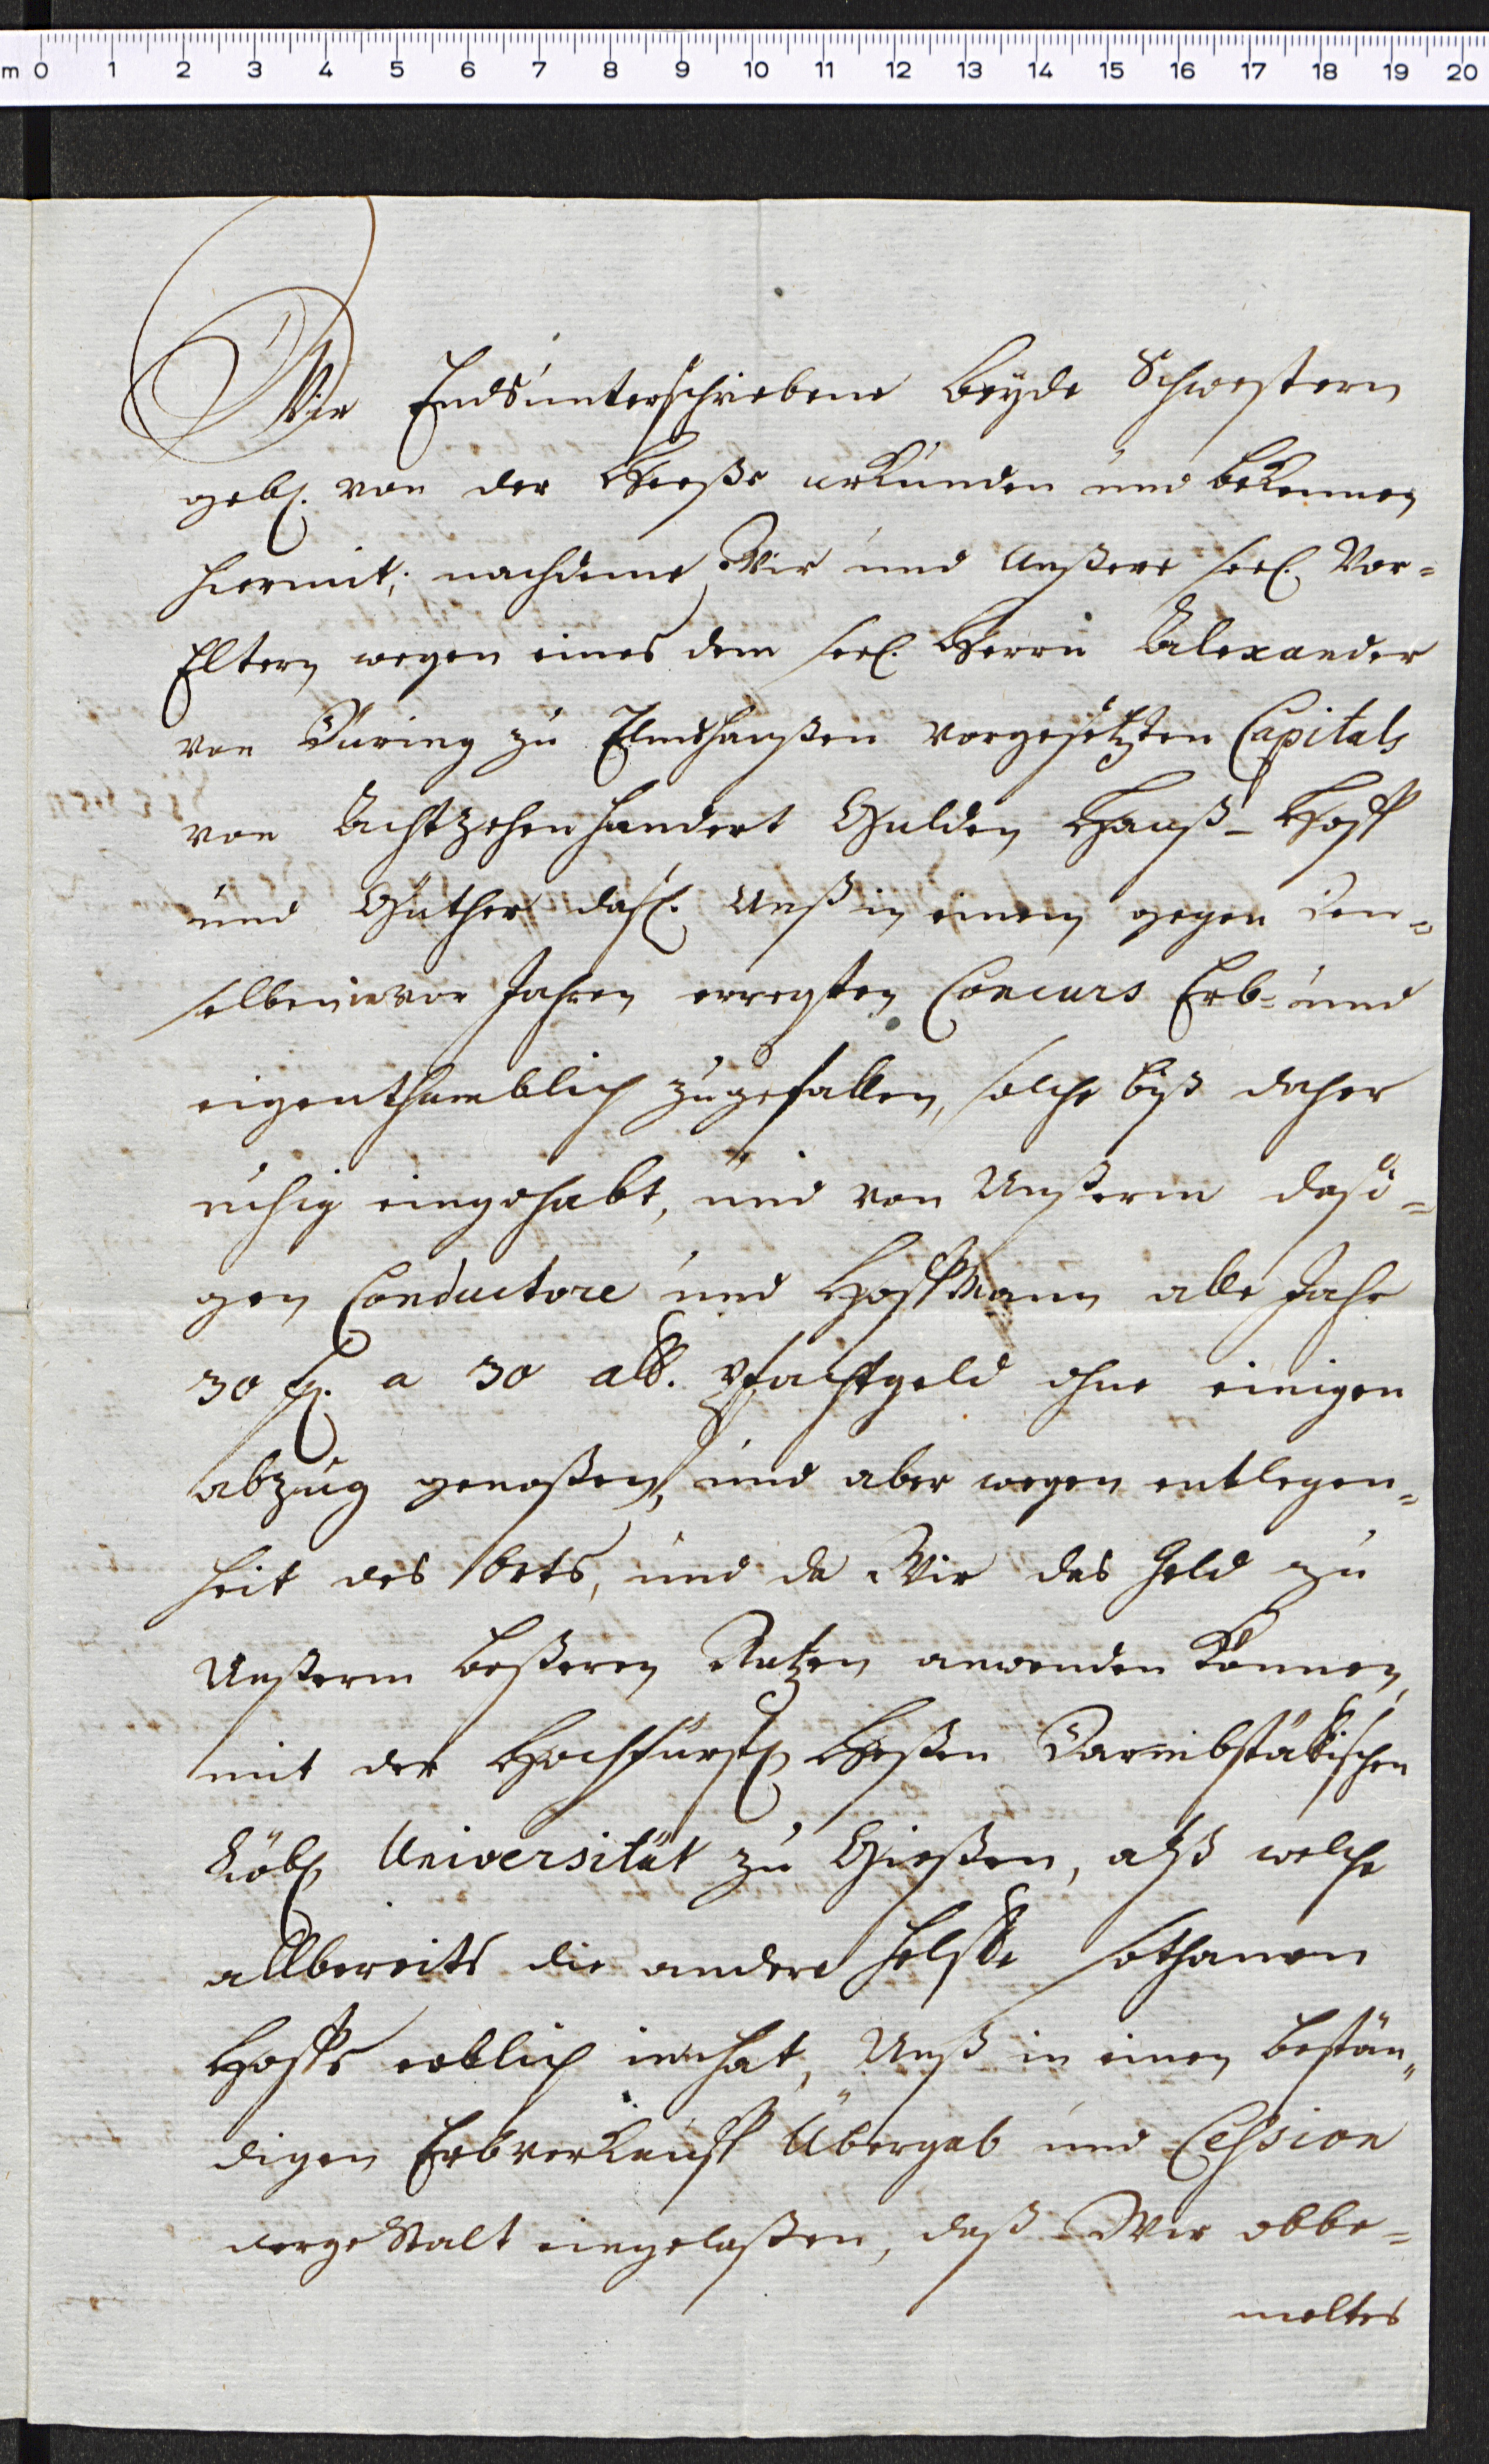 m 0 1 2 3 4 5 6 7 8 9 10 11 12 13 14 15 16 17 18 19 20
Wir Endsunterschriebene beyde Schwestern
gebl. von der Heeße urkunden und bekennen
hiermit; nachdeme Wir und Unßere seel. Vor=
Eltern wegen eines dem seel. Herrn Alexander
von Düring zu Elmshaußen vorgesetzten Capitals
von Achtzehenhundert Gulden Hauß- Hoff
und Güther das. Unß in einem gegen den=
selben vor Jahren erregten Concurs Erb- und
eigenthumblich zugefallen, solche biß daher
ruhig eingehabt, und von Unßerm dasi=
gen Conductore und Hoffmann alle Jahr
30 fl. a 30 alb. Pfachtgeld ohne einigen
abzug genoßen, und aber wegen entlegen=
heit des Orts, und da Wir das Geld zu
Unßerm beßeren Nutzen anwenden können,
mit der Hochfürstl. Heßen Darmbstättischen
Löbl. Universität zu Gießen, alß welche
allbereits die andere Helffte sothanen
Hoffs erblich inhat, Unß in einen bestän=
digen Erbverkauff Übergab und Cession
dergestalt eingelaßen, daß Wir obbe=
meltes